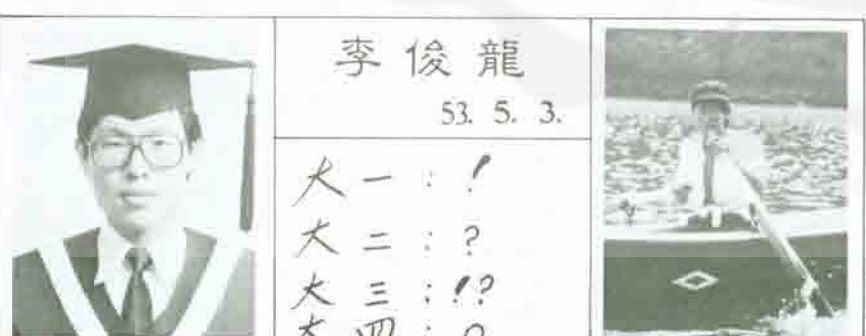 李俊龍
53. 5. 3.
大一：!
大二：?
大三：!?
大四：?